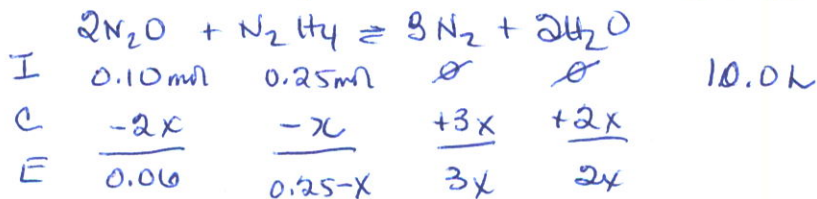 2N₂O + N₂H4 ⇌ 3N₂ + 2H₂O
I 0.10 mol 0.25 mol ∅ ∅ 10.0 L
C -2x -x +3x +2x
E 0.06 0.25-x 3x 2x